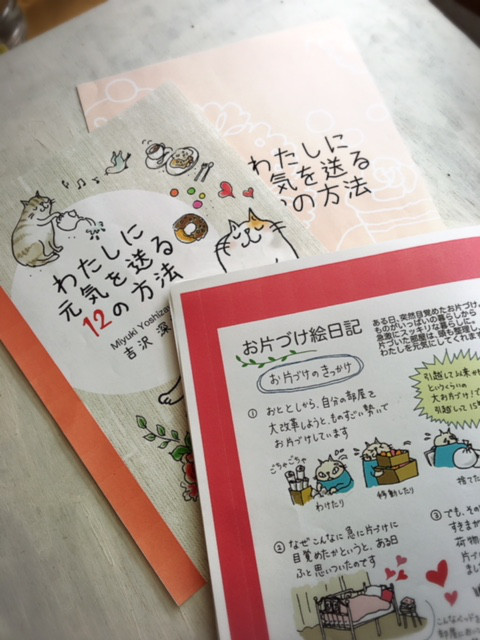 わたしに
元気を送る
の方法
わたしに
元気を送る
12の方法
Miyuki Yoshizaw
吉沢 深
お片づけ絵日記
ある日、突然目覚めたお片づけ。
ものがいっぱいの暮らしから
急激にスッキリな暮らしに。
片づいた部屋は、頭も整理し、
わたしを元気にしてくれます
お片づけのきっかけ
① おととしから、自分の部屋を
大改革しようと、ものすごい勢いで
お片づけしています
引越して以来
というくらいの
大お片づけ!
引越して15
ごちゃごちゃ
わけたり
移動したり
捨てた
② なぜこんなに急に片づけに
目覚めたかというと、ある日
ふと思いついたのです
③ でも、その
すきまが
荷物
片づ
まし
こんなベッドを
部屋にお